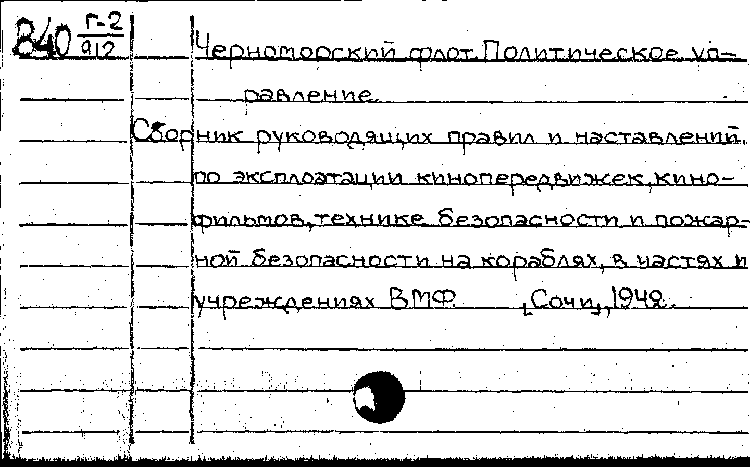 В40 Г-2/912
Черноморский флот. Политическое уп-
равление.
Сборник руководящих правил и наставлений
по эксплоатации кинопередвижек, кино-
фильмов, технике безопасности и пожар-
ной безопасности на кораблях, в частях и
учреждениях ВМФ. [Сочи], 1942.